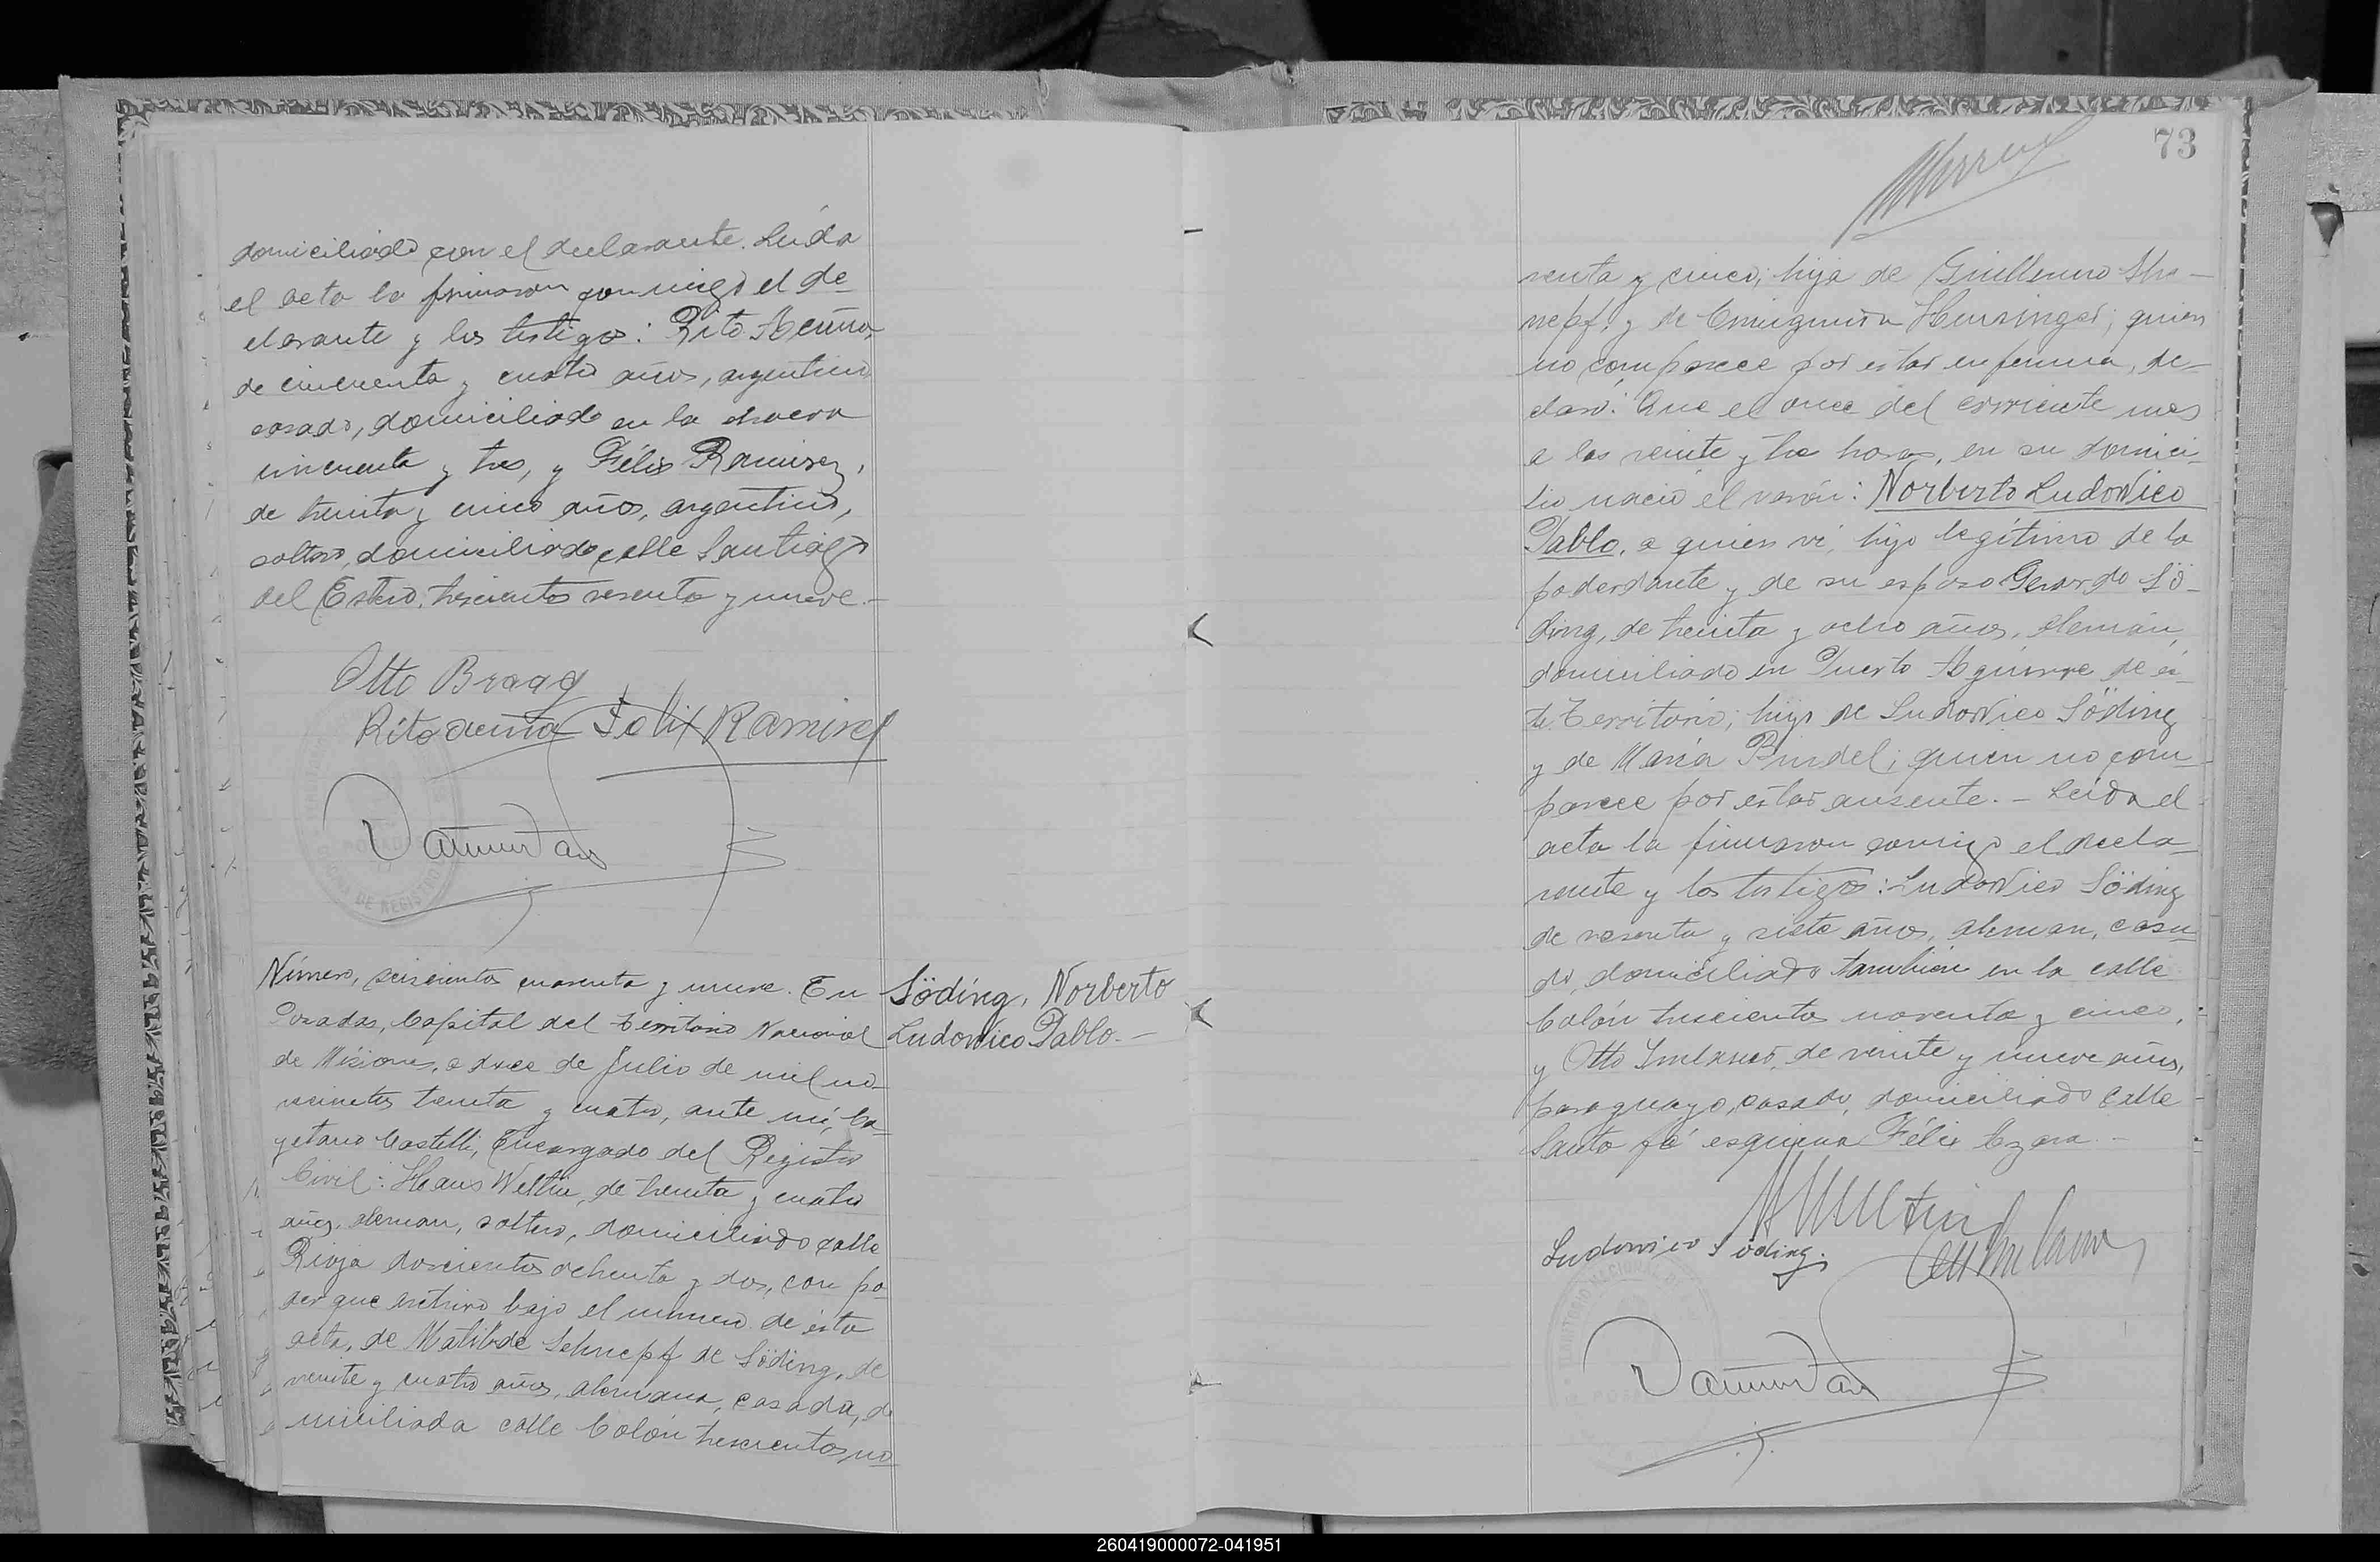 domiciliado con el declarante. Leída
el acta la firmaron conmigo el de-
clarante y los testigos: Rito Acuña,
de cincuenta y cuatro años, argentino
casado, domiciliado en la chacra
cincuenta y tres, y Félix Ramirez,
de treinta y cinco años, argentino,
soltero, domiciliado calle Santiago
del Estero, trescientos sesenta y nueve.-
Otto Braag
Rito Acuña Felix Ramirez
Número, seiscientos cuarenta y nueve. En
Posadas, Capital del Territorio Nacional
de Misiones, a doce de Julio de mil no-
vecientos treinta y cuatro, ante mí, Ca-
yetano Castelli, Encargado del Registro
Civil: Hans Weltin, de treinta y cuatro
años, aleman, soltero, domiciliado calle
Rioja doscientos ochenta y dos, con po-
der que archivo bajo el numero de ésta
acta, de Matilde Schnepf de Söding, de
veinte y cuatro años, alemana, casada, do
miciliada calle Colón trescientos no
Söding, Norberto
Ludovico Pablo.-
73
venta y cinco, hija de Guillermo Sh
nepf, y de quien
no comparece por estar enferma, de-
claró: Que el once del corriente mes
a las veinte y tres horas, en su domici-
lio nació el varón: Norberto Ludovico
Pablo, a quien vi, hijo legítimo de la
poderdante y de su esposo Gerardo Sö-
ding, de treinta y ocho años, alemán,
domiciliado en Puerto Aguirre de és-
te Territorio; hijo de Ludovico Söding
y de María quien no com-
parece por estar ausente.- Leída el
acta la firmaron conmigo el decla-
rante y los testigos: Ludovico Söding
de sesenta y siete años, aleman, casa-
do, domiciliado tambien en la calle
Colón trescientos noventa y cinco,
y Otto de veinte y nueve años,
paraguayo, casado, domiciliado calle
Santa fé esquina Félix Azara.-
Ludovico Söding.